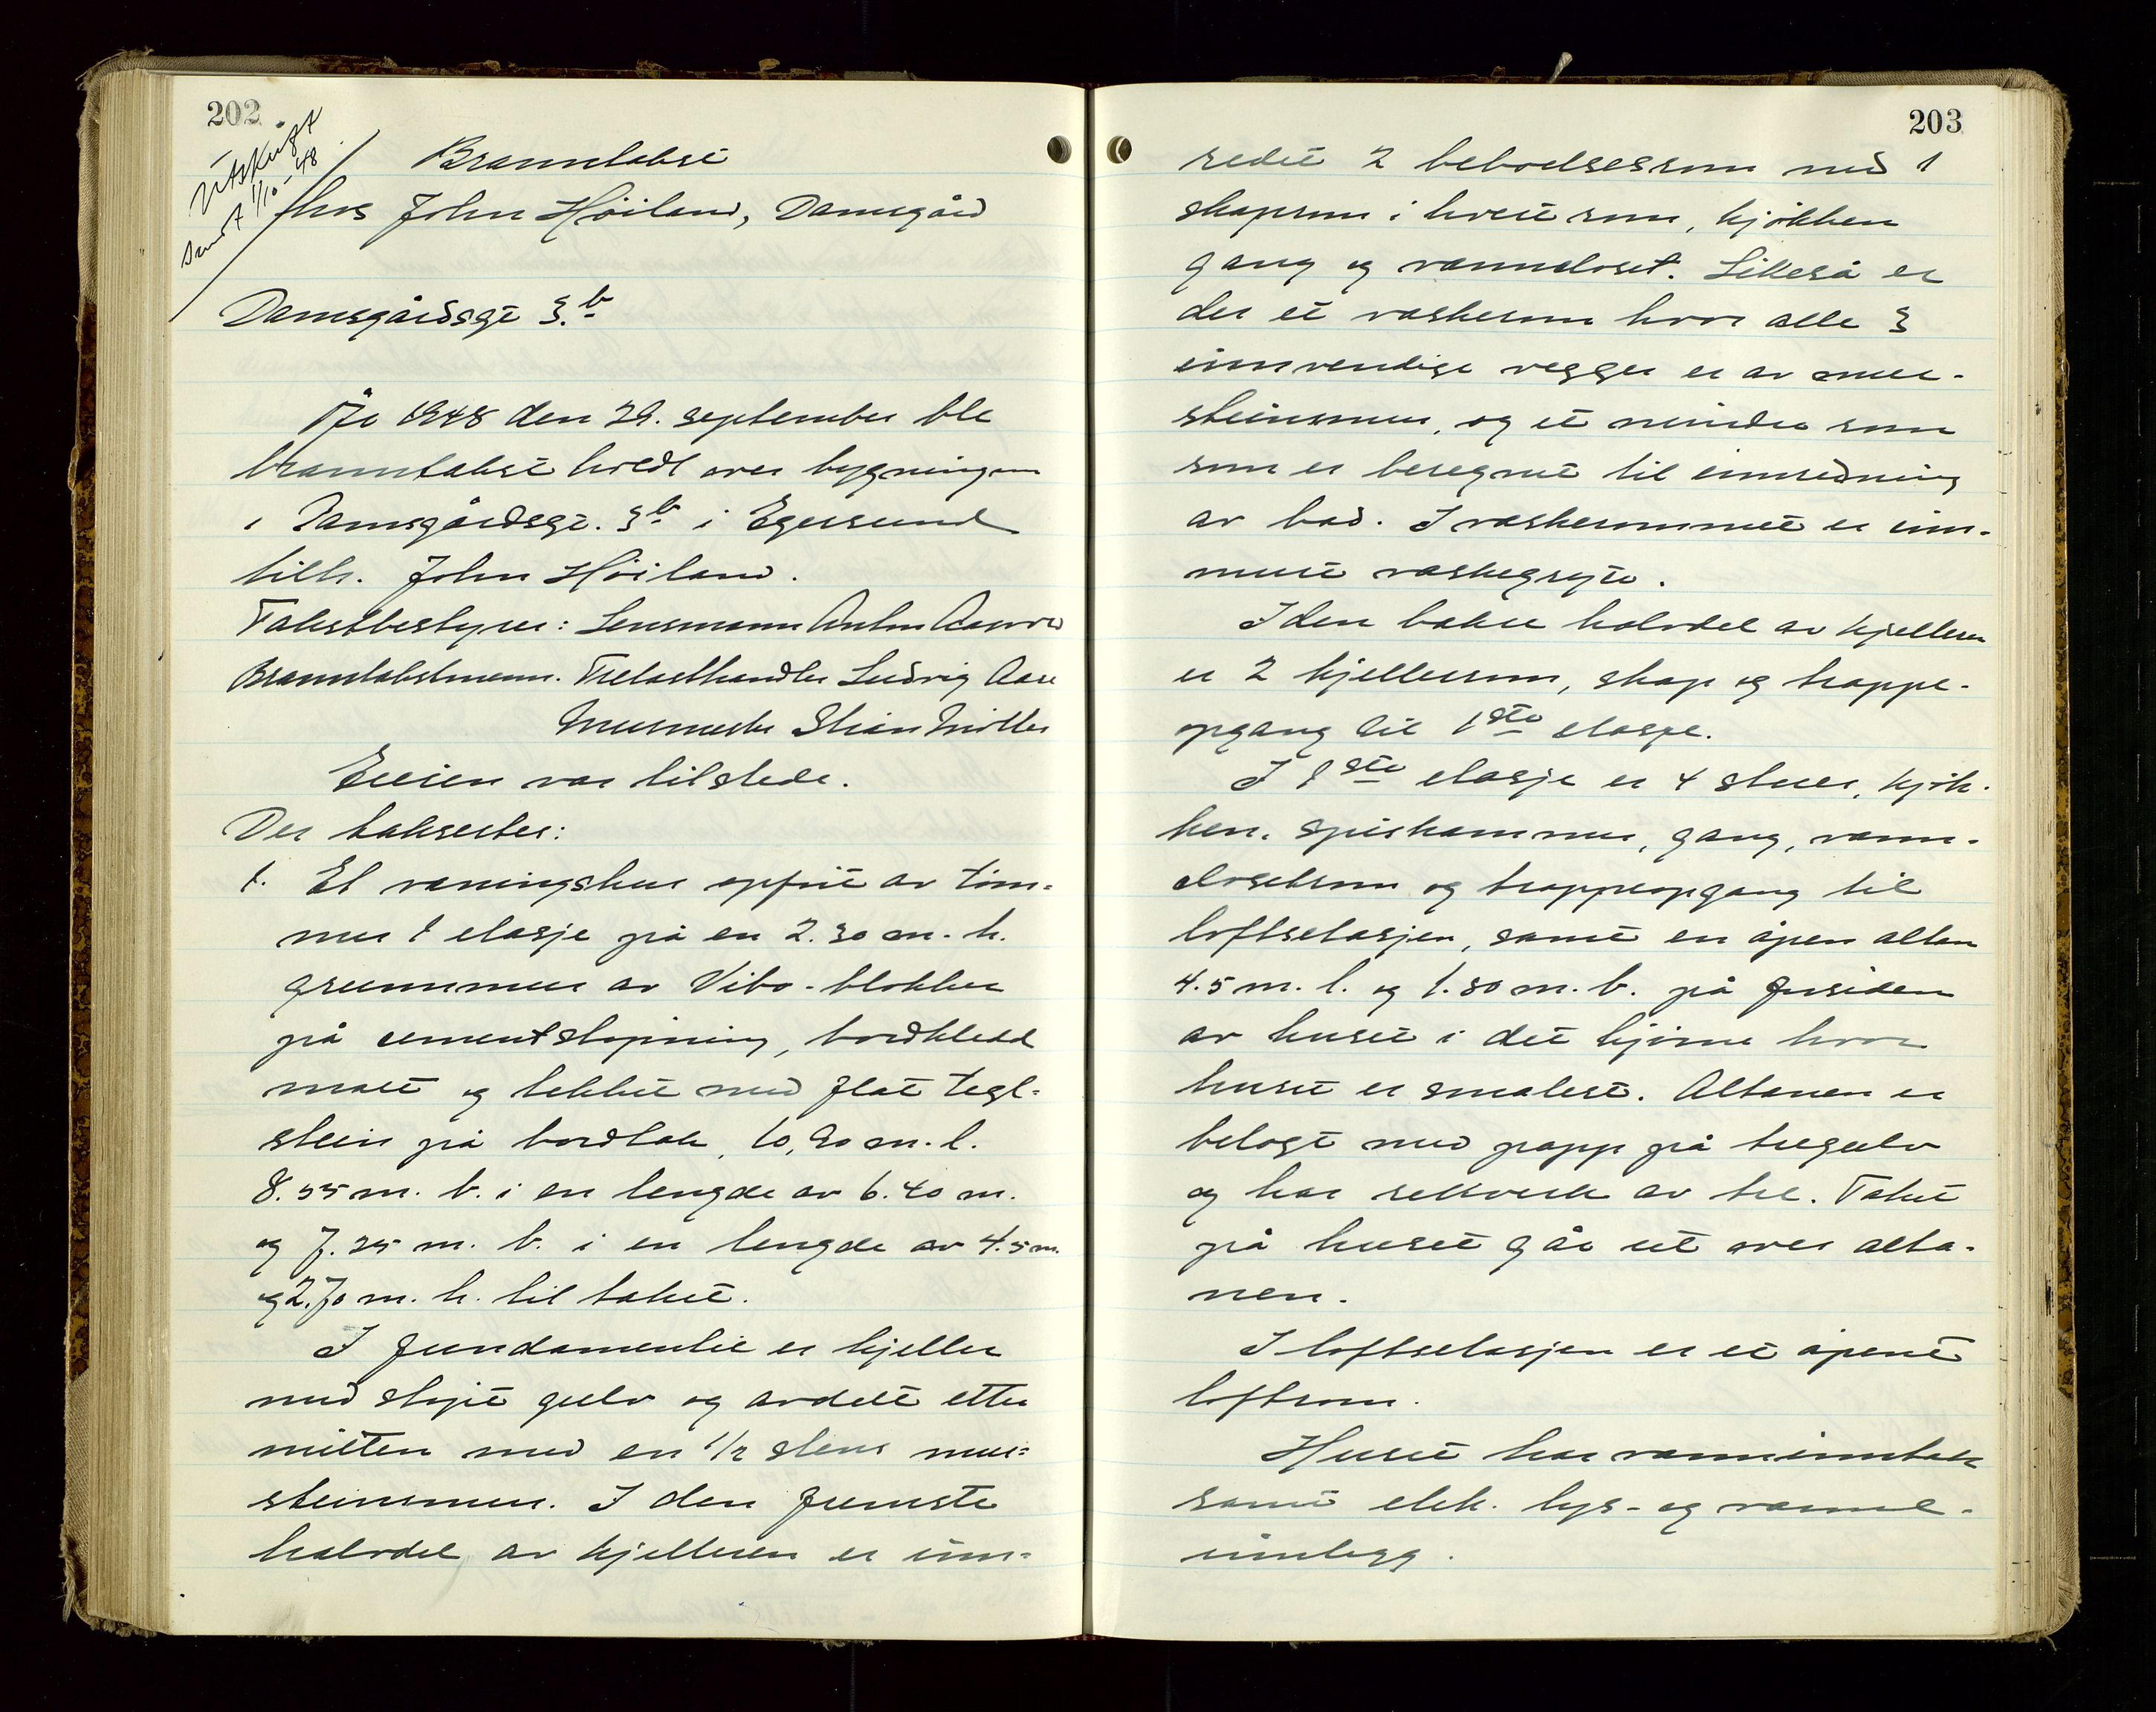 202
Utskrift
sendt 1/10-48
Branntakst
hos John Höiland, Damsgård
Damsgårdsgt 3.b
År 1948 den 29. september ble
branntakst holdt over bygningen
i Damsgårdsgt. 3b i Egersund
tilh. John Höiland.
Takstbestyrer: Lensmann Anton Aamod
Branntakstmenn. Trelasthandler Ludvig Aase
Murmester Stian Möller
Eieren var tilstede.
Der taksertes:
1. Et våningshus oppfört av töm-
mer 1 etasje på en 2.30 m. h.
grunnmur av Vibo-blokker
på cementstöpning, bordkledd
malt og tekket med flat tegl-
stein på bordtak, 10,90 m. l.
8.55 m. b. i en lengde av 6.40 m.
og 7.25 m. b. i en lengde av 4.5 m.
og 2.70 m. h. til taket.
I fundamentet er kjeller
med stöpt gulv og avdelt etter
midten med en 1/2 stens mur-
steinsmur. I den fremste
halvdel av kjelleren er inn-
203
redet 2 beboelsesrom med 1
skaprom i hvert rom, kjökken
gang og vannkloset. Likeså er
der et vaskerom hvor alle 3
innvendige vegger er av mur-
steinsmur, og et mindre rom
som er beregnet til innredning
av bad. I vaskerommet er inn-
muret vaskegryte.
I den bakre halvdel av kjelleren
er 2 kjellerrom, skap og trappe-
opgang til 1ste etasje.
I 1ste etasje er 4 stuer, kjök-
ken, spiskammer, gang, vann-
closetrom og trappeopgang til
loftsetasjen, samt en åpen altan
4.5 m. l. og 1.30 m. b. på forsiden
av huset i det hjörne hvor
huset er smalest. Altanen er
belagt med papp på tregulv
og har rekkverk av tre. Taket
på huset går ut over alta-
nen.
I loftsetasjen er et åpent
loftsrom.
Huset har vanninntak
samt elek. lys- og varme-
innlegg.